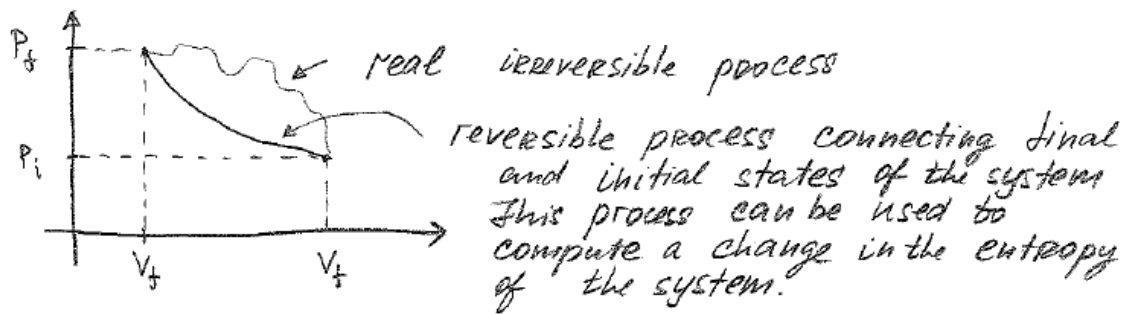 P_f
real irreversible process
reversible process connecting final
P_i
and initial states of the system
This process can be used to
compute a change in the entropy
V_f V_f
of the system.